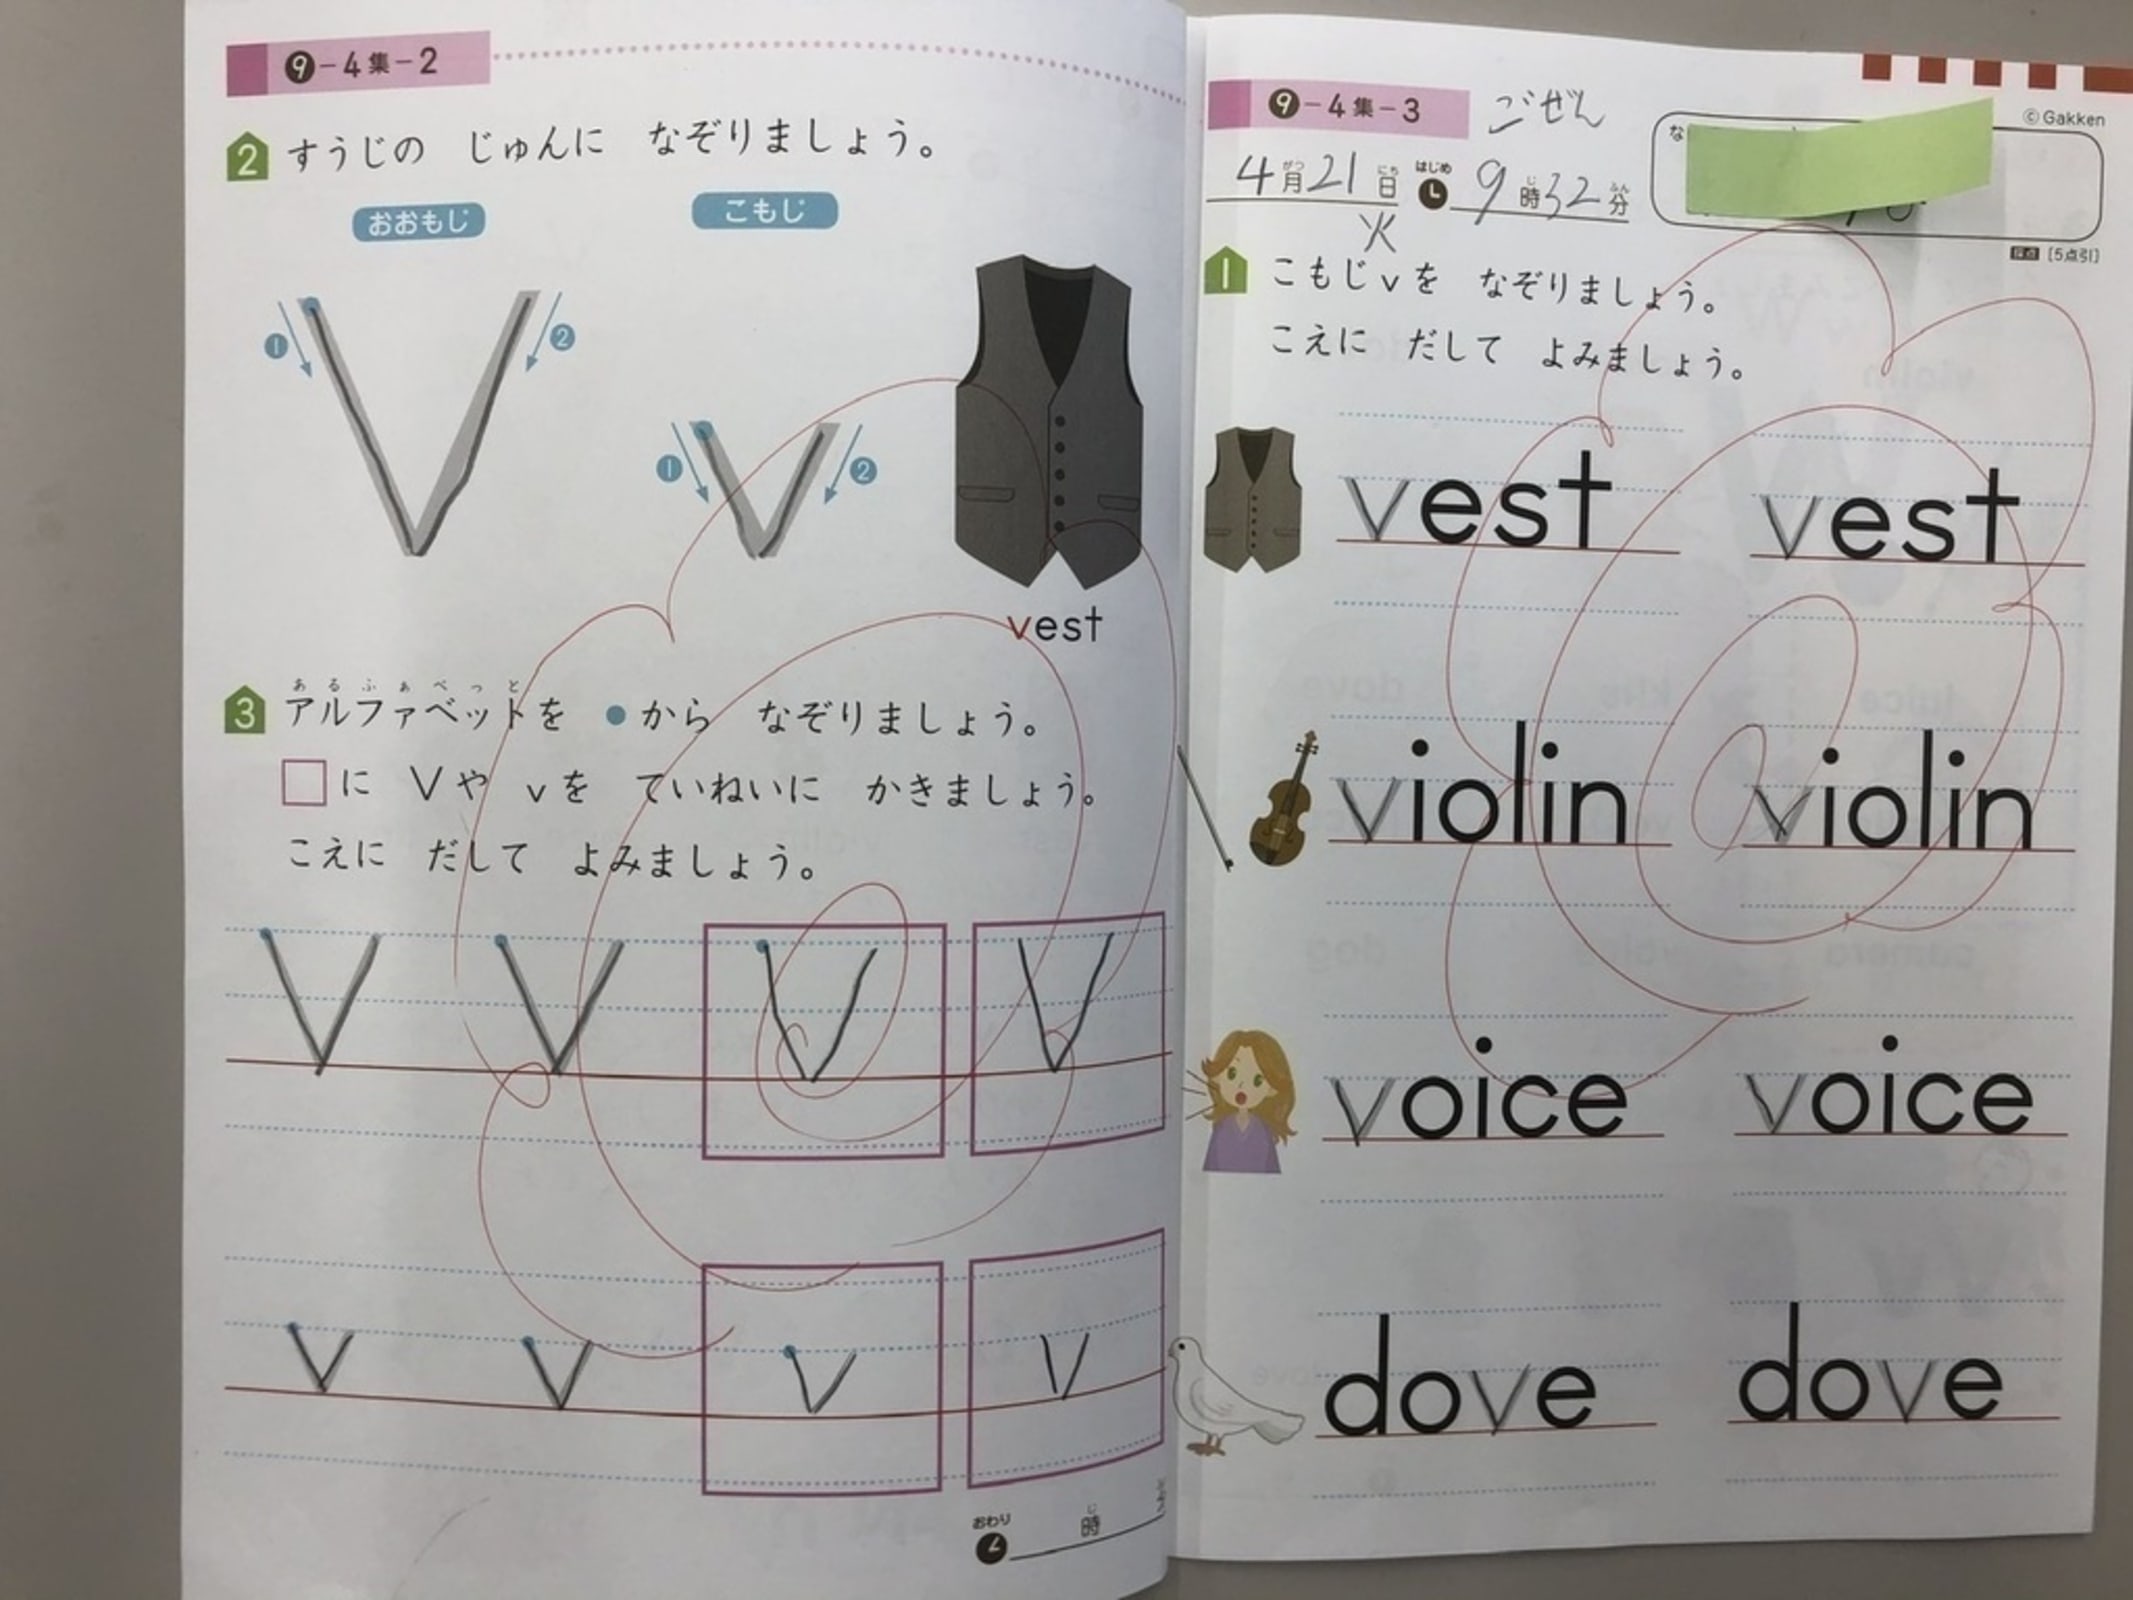 9-4集-2
2 すうじの じゅんに なぞりましょう。
おおもじ
こもじ
1
2
1
2
vest
あるふぁべっと
3 アルファベットを ●から なぞりましょう。
□に Vや vを ていねいに かきましょう。
こえに だして よみましょう。
V V V V
v v v v
おわり
じ
時
9-4集-3 ごぜん
©Gakken
な
がつ にち はじめ じ ふん
4月21日 9時32分
火
採点 [5点引]
1 こもじvを なぞりましょう。
こえに だして よみましょう。
vest vest
violin violin
voice voice
dove dove